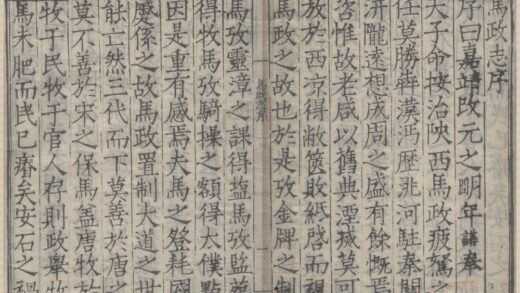 馬政志序
序曰嘉靖改元之明年講奉
天子命按治陝西馬政疲駑之
任莫勝犇漢沔歷洮河駐秦關
汧隴遠想成周之盛有餘慨焉
咨惟故老咸以舊典湮滅莫可
放於西凉得敝篋敗紙啓而視
馬政之故也於是攷金牌之制
馬攷靈漳之課得塩馬攷監苑
得牧馬攷騎操之額得太僕點
因是重有感焉夫馬之登耗國
蹙係之故馬政置制大道之世
能亡然三代而下莫善於唐之
莫不善於宋之保馬盖唐牧於
牧于民牧于官人存則政舉牧
馬未肥而民已瘠矣安石之禍